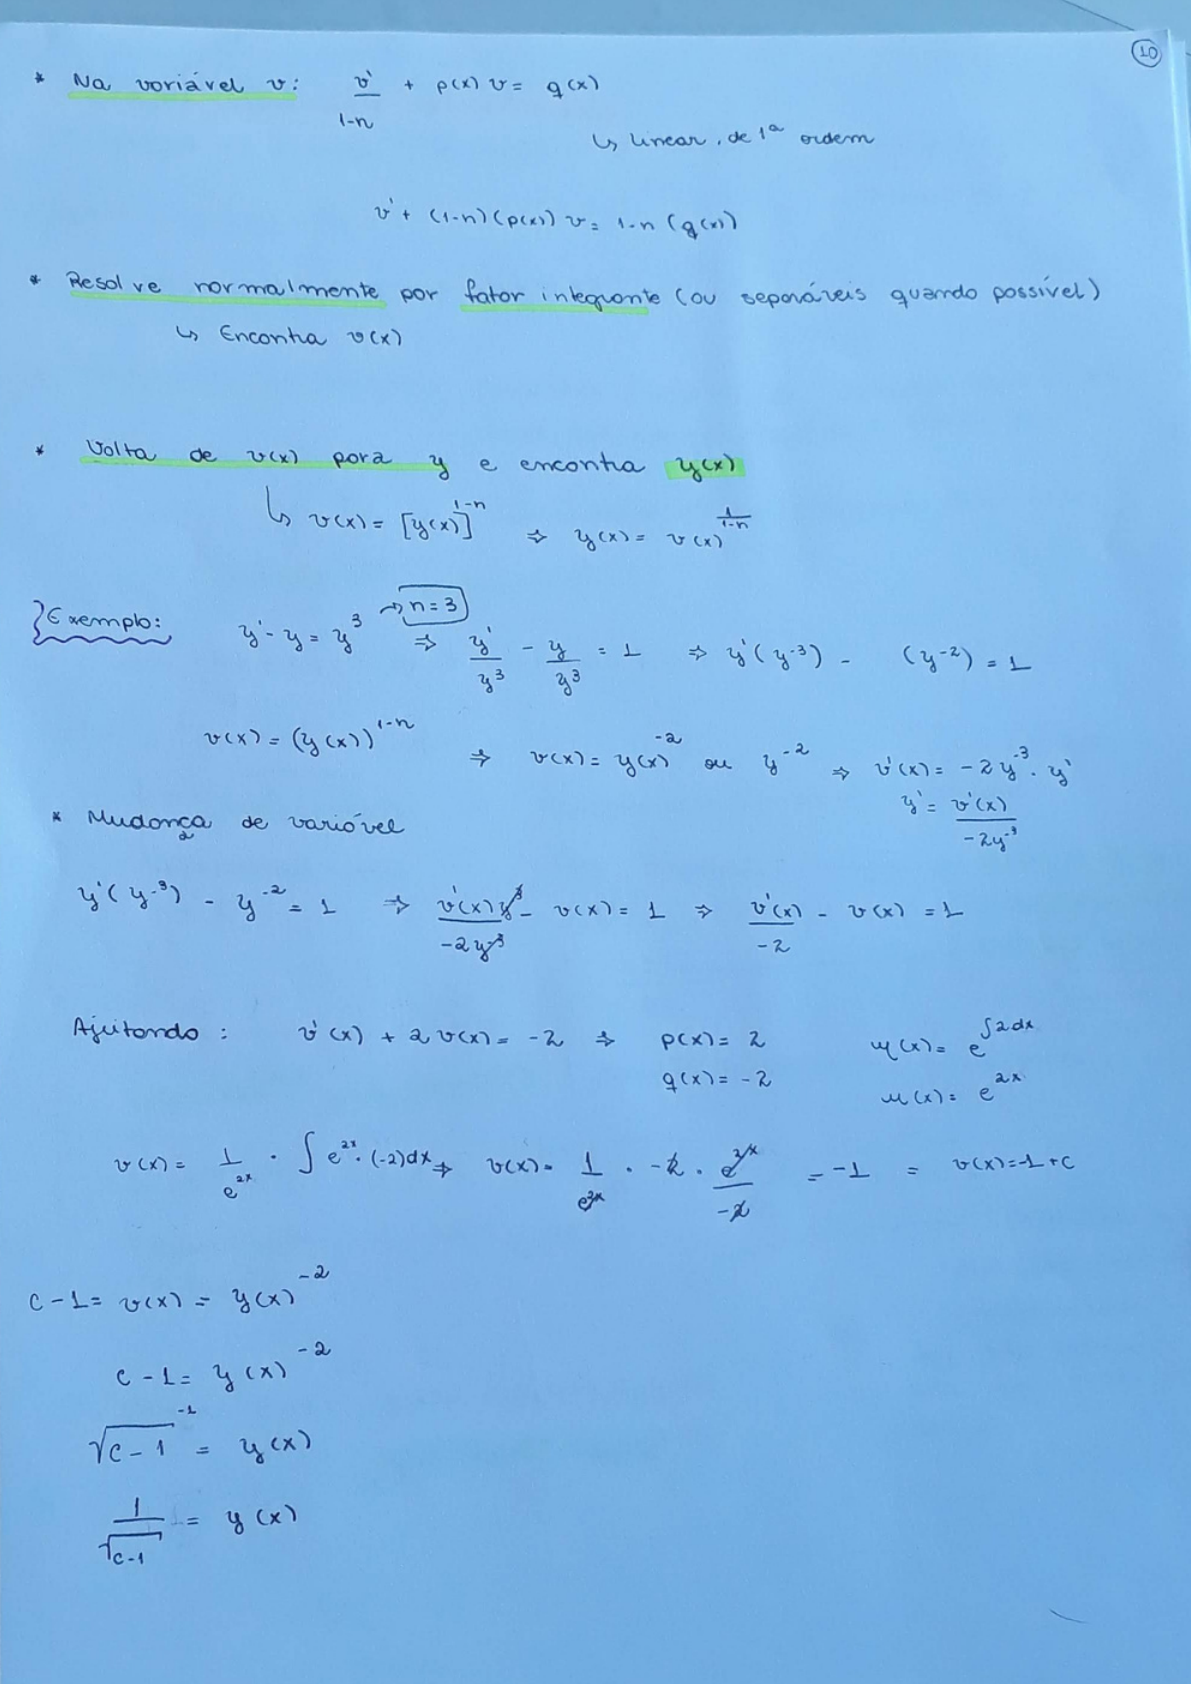 10
* Na variável v: v'/(1-n) + p(x) v = q(x)
↳ linear, de 1ª ordem
v' + (1-n)(p(x)) v = 1-n (q(x))
* Resolve normalmente por fator integrante (ou separáveis quando possível)
↳ Encontra v(x)
* Volta de v(x) para y e encontra y(x)
↳ v(x) = [y(x)]^(1-n) ⇒ y(x) = v(x)^(1/(1-n))
Exemplo: y' - y = y^3 → n = 3 ⇒ y'/y^3 - y/y^3 = 1 ⇒ y'(y^-3) - (y^-2) = 1
v(x) = (y(x))^(1-n) ⇒ v(x) = y(x)^-2 ou y^-2 ⇒ v'(x) = -2y^-3 . y'
y' = v'(x)/(-2y^-3)
* Mudança de variável
y'(y^-3) - y^-2 = 1 ⇒ v'(x) y^-3/(-2y^-3) - v(x) = 1 ⇒ v'(x)/(-2) - v(x) = 1
Ajeitando: v'(x) + 2 v(x) = -2 ⇒ p(x) = 2 μ(x) = e^(∫2dx)
q(x) = -2 μ(x) = e^(2x)
v(x) = 1/e^(2x) . ∫ e^(2x) . (-2)dx ⇒ v(x) = 1/e^(2x) . -2 . e^(2x)/(-2) = -1 = v(x) = -1 + c
c - 1 = v(x) = y(x)^-2
c - 1 = y(x)^-2
√(c - 1)^-1 = y(x)
1/√(c-1) = y(x)